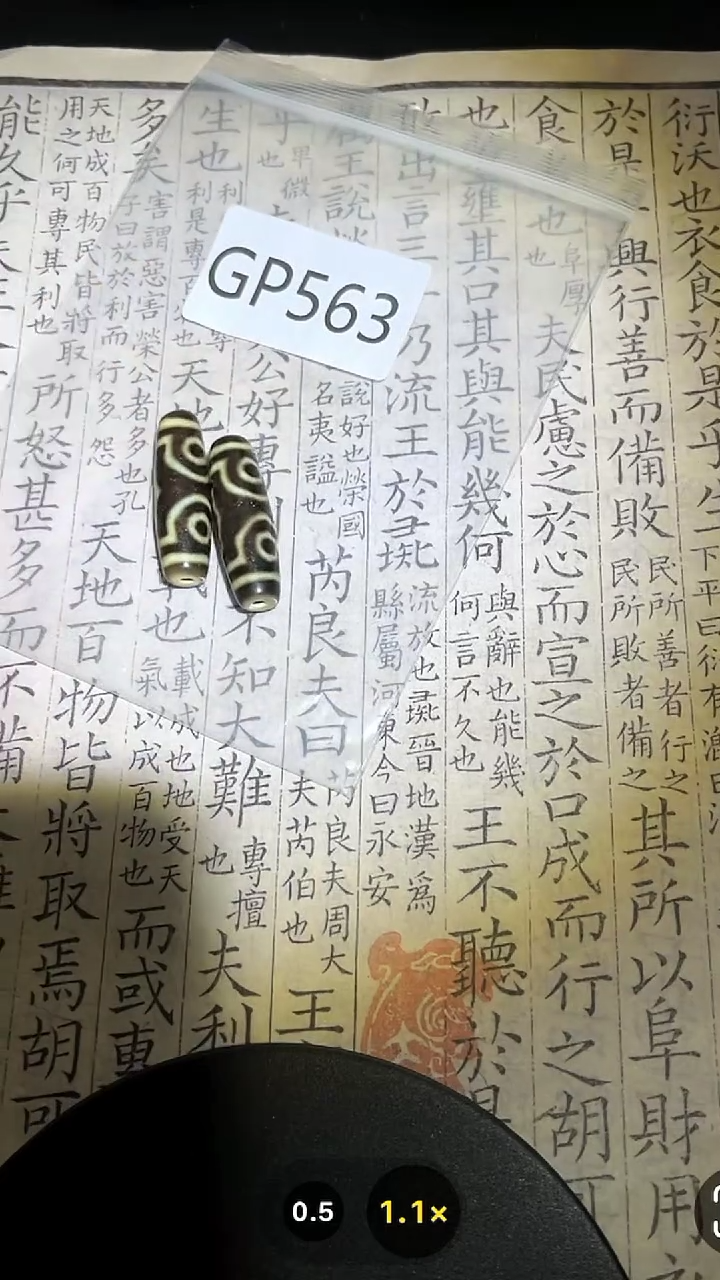 GP563
衍沃也衣食於是乎生
下平曰衍有溉曰
於是
興行善而備敗
民所善者行之
民所敗者備之
其所以阜財用
食
也
阜厚
也
夫民慮之於心而宣之於口成而行之胡可
也
壅其口其與能幾何
與辭也能幾
何言不久也
王不聽於是
敢出言三
乃流王於彘
流放也彘晉地漢為
縣屬河東今曰永安
王說
說好也榮國
名夷謚也
芮良夫曰
芮良夫周大
夫芮伯也
王
乎
卑微
也
公好專利
不知大難
專擅
也
夫利
生也
利
利是專
天地
也
載成也地受天
氣以成百物也
而或專
多矣
害謂惡害榮公者多也孔
子曰放於利而行多怨
天地百物皆將取焉胡可
天地成百物民皆將取
用之何可專其利也
所怒甚多而不備
能久乎夫王
0.5
1.1×